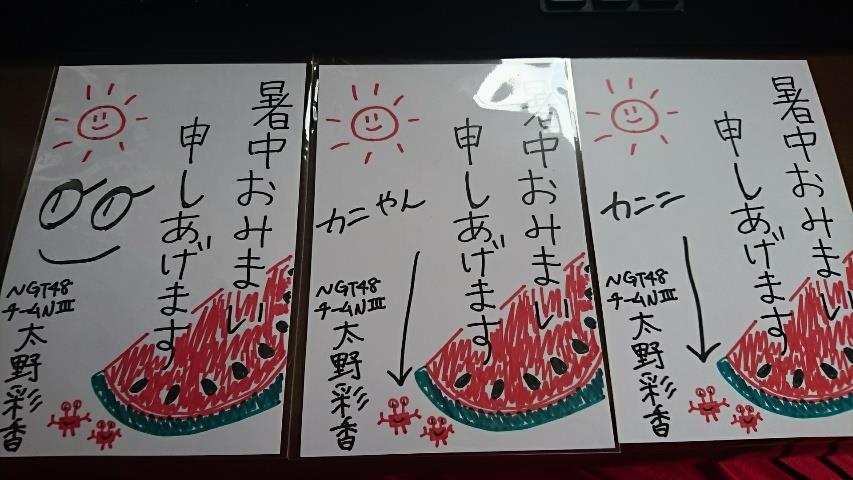 暑中おみまい
申しあげます
NGT48
チームNⅢ
太野彩香
暑中おみまい
申しあげます
カニやん
NGT48
チームNⅢ
太野彩香
暑中おみまい
申しあげます
カニニ
NGT48
チームNⅢ
太野彩香